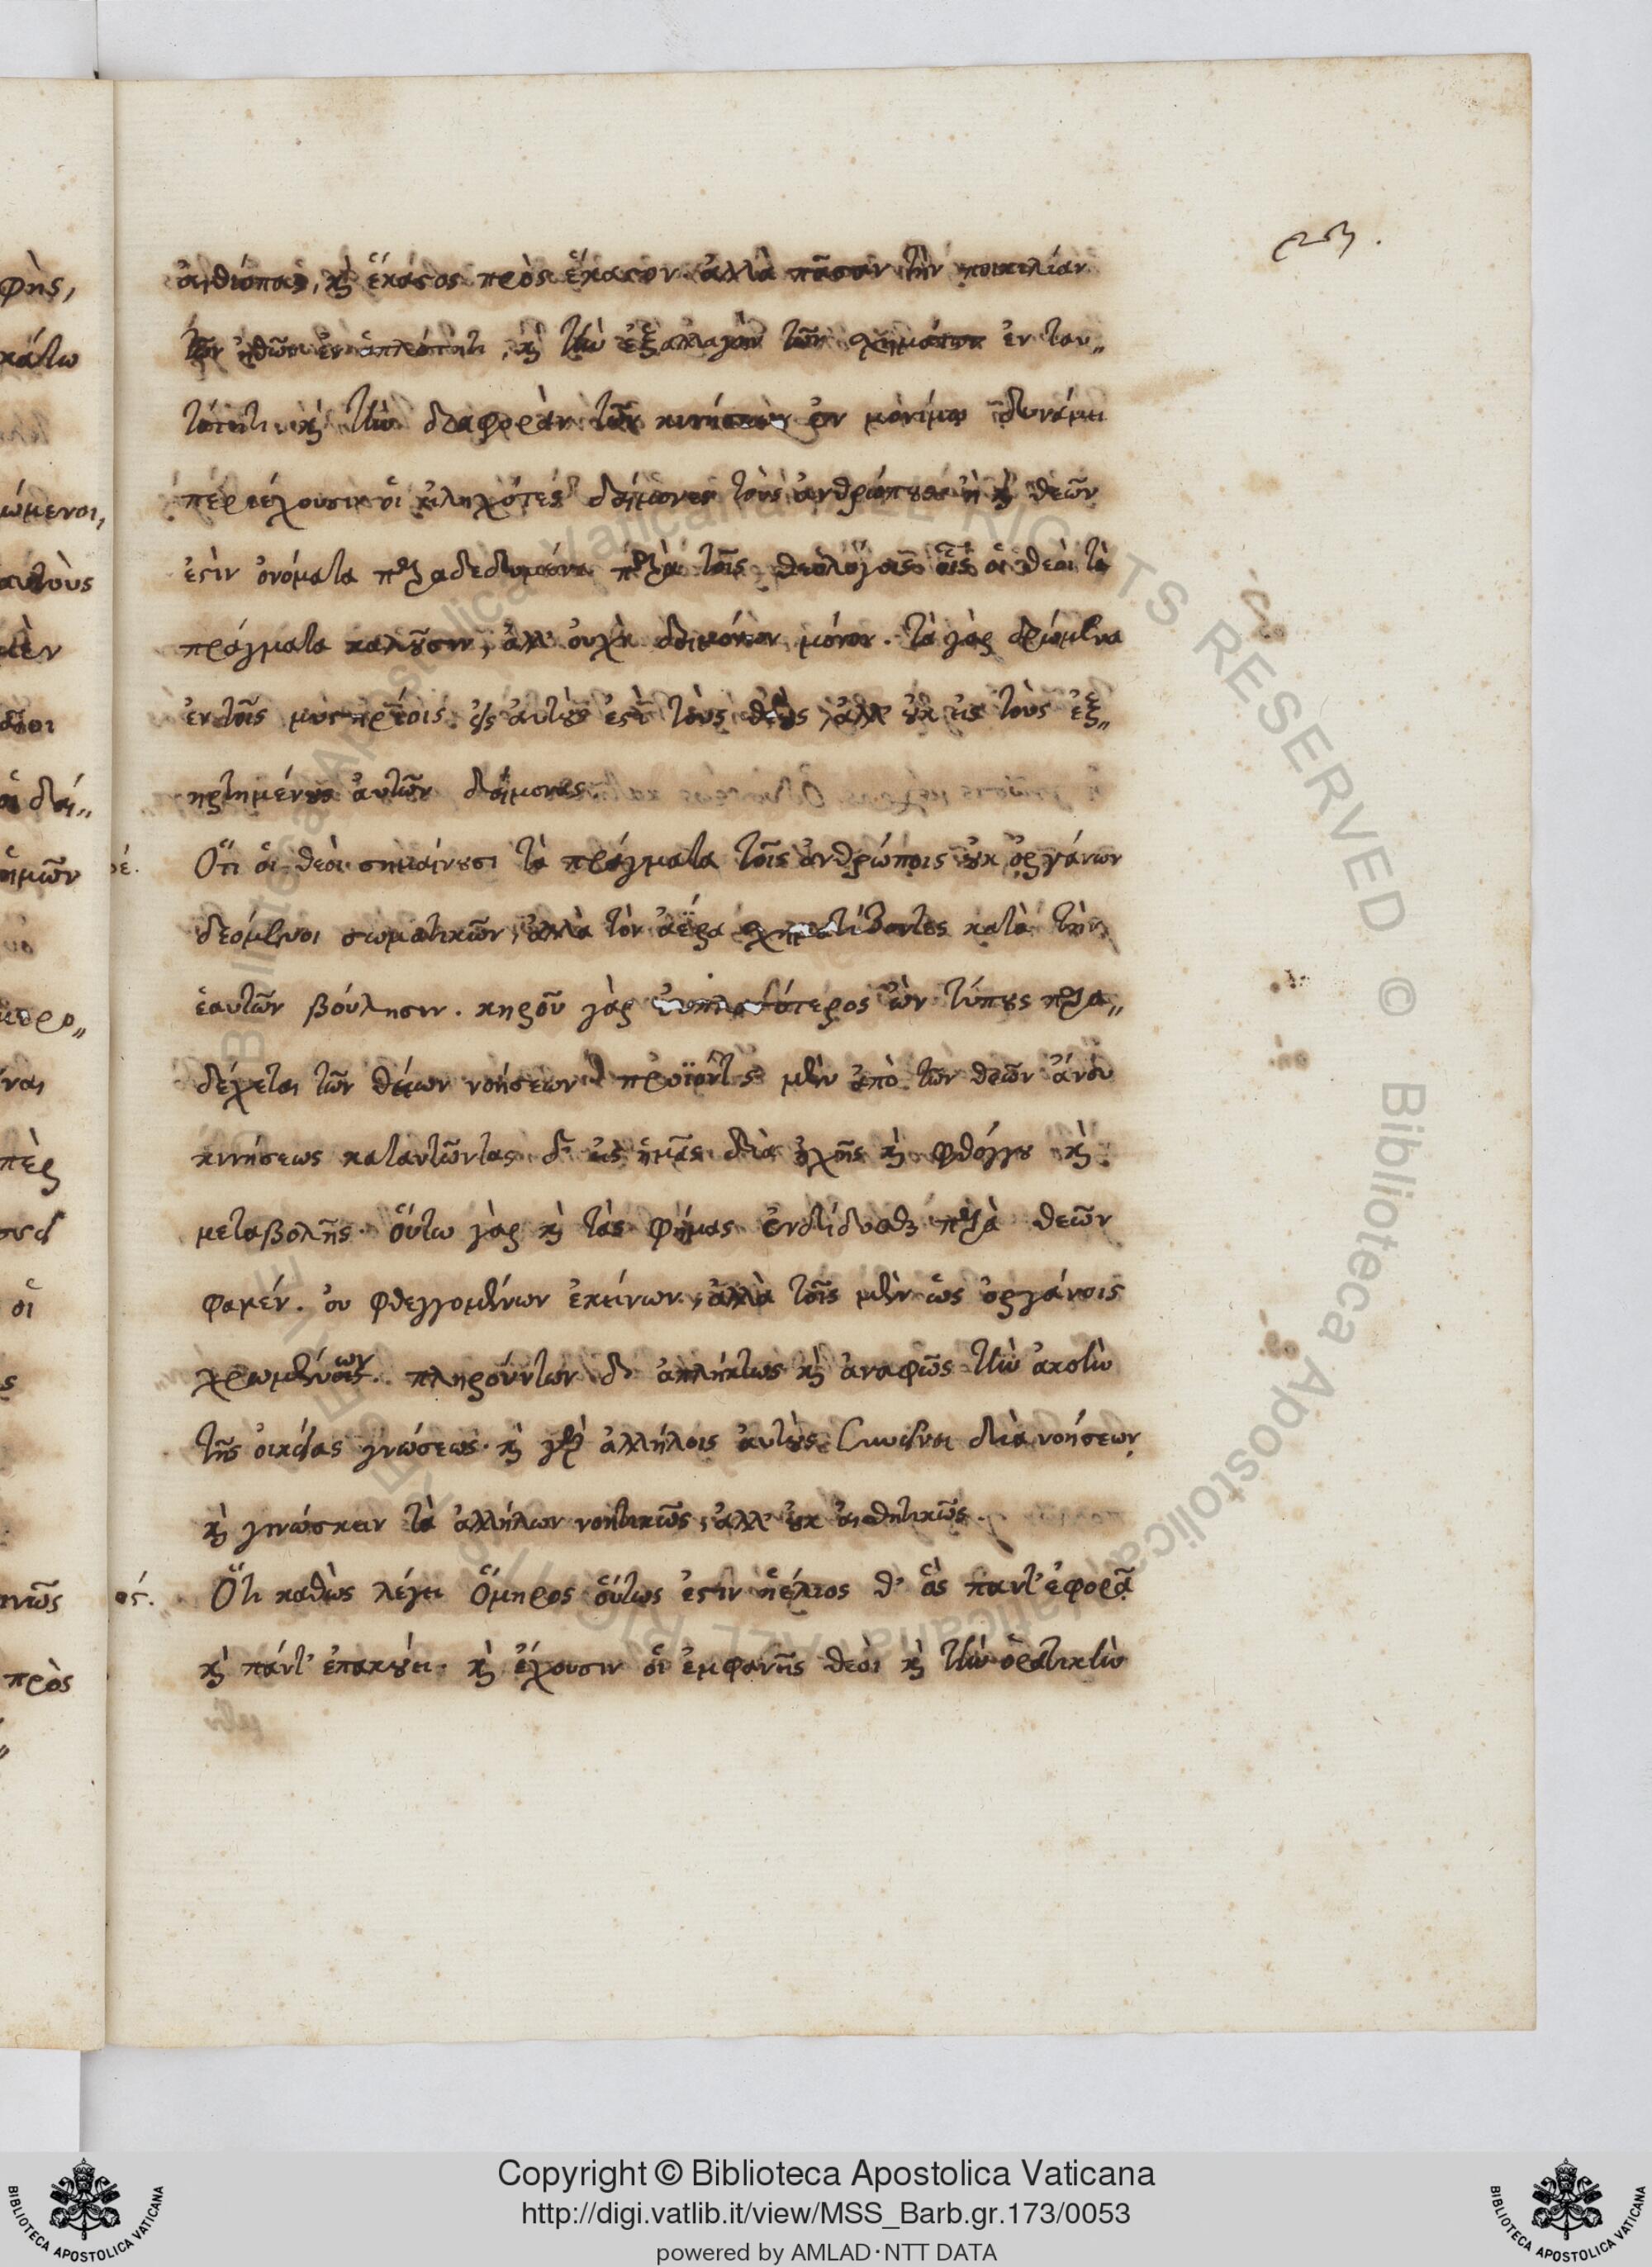 αἰθίοπας, καὶ ἕκαστος πρὸς ἕκαστον. ἀλλὰ πᾶσαν τὴν ποικιλίαν
τῶν ἠθῶν ἐν ἁπλότητι, καὶ τὴν ἐξαλλαγὴν τῶν σχημάτων ἐν ταυ„
τότητι, καὶ τὴν διαφορὰν τῶν κινήσεων ἐν μονίμῳ δυνάμει
περιέχουσιν οἱ εἰληχότες δαίμονες τοὺς ἀνθρώπους καὶ θεῶν
ἐστὶν ὀνόματα παραδεδομένα παρὰ τοῖς θεολόγοις οἷς οἱ θεοὶ τὰ
πράγματα καλοῦσιν, ἀλλ' οὐχὶ δαιμόνων μόνον. τὰ γὰρ δρώμενα
ἐν τοῖς μυστηρίοις εἰς αὐτοὺς ἐστὶ τοὺς θεοὺς, ἀλλ' οὐκ εἰς τοὺς ἐξ„
ηρτημένους αὐτῶν δαίμονας
οε. Ὅτι οἱ θεοὶ σημαίνουσι τὰ πράγματα τοῖς ἀνθρώποις οὐκ ὀργάνων
δεόμενοι σωματικῶν, ἀλλὰ τὸν ἀέρα σχηματίζοντες κατὰ τὴν
ἑαυτῶν βούλησιν. κηροῦ γὰρ εὐπλαστότερος ὢν τύπους παρα„
δέχεται τῶν θείων νοήσεων προϊόντας μὲν ἀπὸ τῶν θεῶν ἄνευ
κινήσεως καταντῶντας δ' εἰς ἡμᾶς διὰ ἠχῆς καὶ φθόγγου καὶ
μεταβολῆς. οὕτω γὰρ καὶ τὰς φήμας ἐνδίδοσθαι παρὰ θεῶν
φαμέν. οὐ φθεγγομένων ἐκείνων, ἀλλὰ τοῖς μὲν ὡς ὀργάνοις
χρωμένων. πληρούντων δ' ἀπλήκτως καὶ ἀναφῶς τὴν ἀκοὴν
τῆς οἰκείας γνώσεως. καὶ γὰρ ἀλλήλοις αὐτοὺς συνεῖναι διὰ νοήσεων
καὶ γινώσκειν τὰ ἀλλήλων νοητικῶς, ἀλλ' οὐκ αἰσθητικῶς.
ος. Ὅτι καθὼς λέγει Ὅμηρος οὕτως ἐστὶν ἠέλιος θ' ὃς παντ' ἐφορᾷ
καὶ πάντ' ἐπακούει. καὶ ἔχουσιν οἱ ἐμφανεῖς θεοὶ καὶ τὴν ὁρατικὴν
Copyright © Biblioteca Apostolica Vaticana
http://digi.vatlib.it/view/MSS_Barb.gr.173/0053
powered by AMLAD·NTT DATA